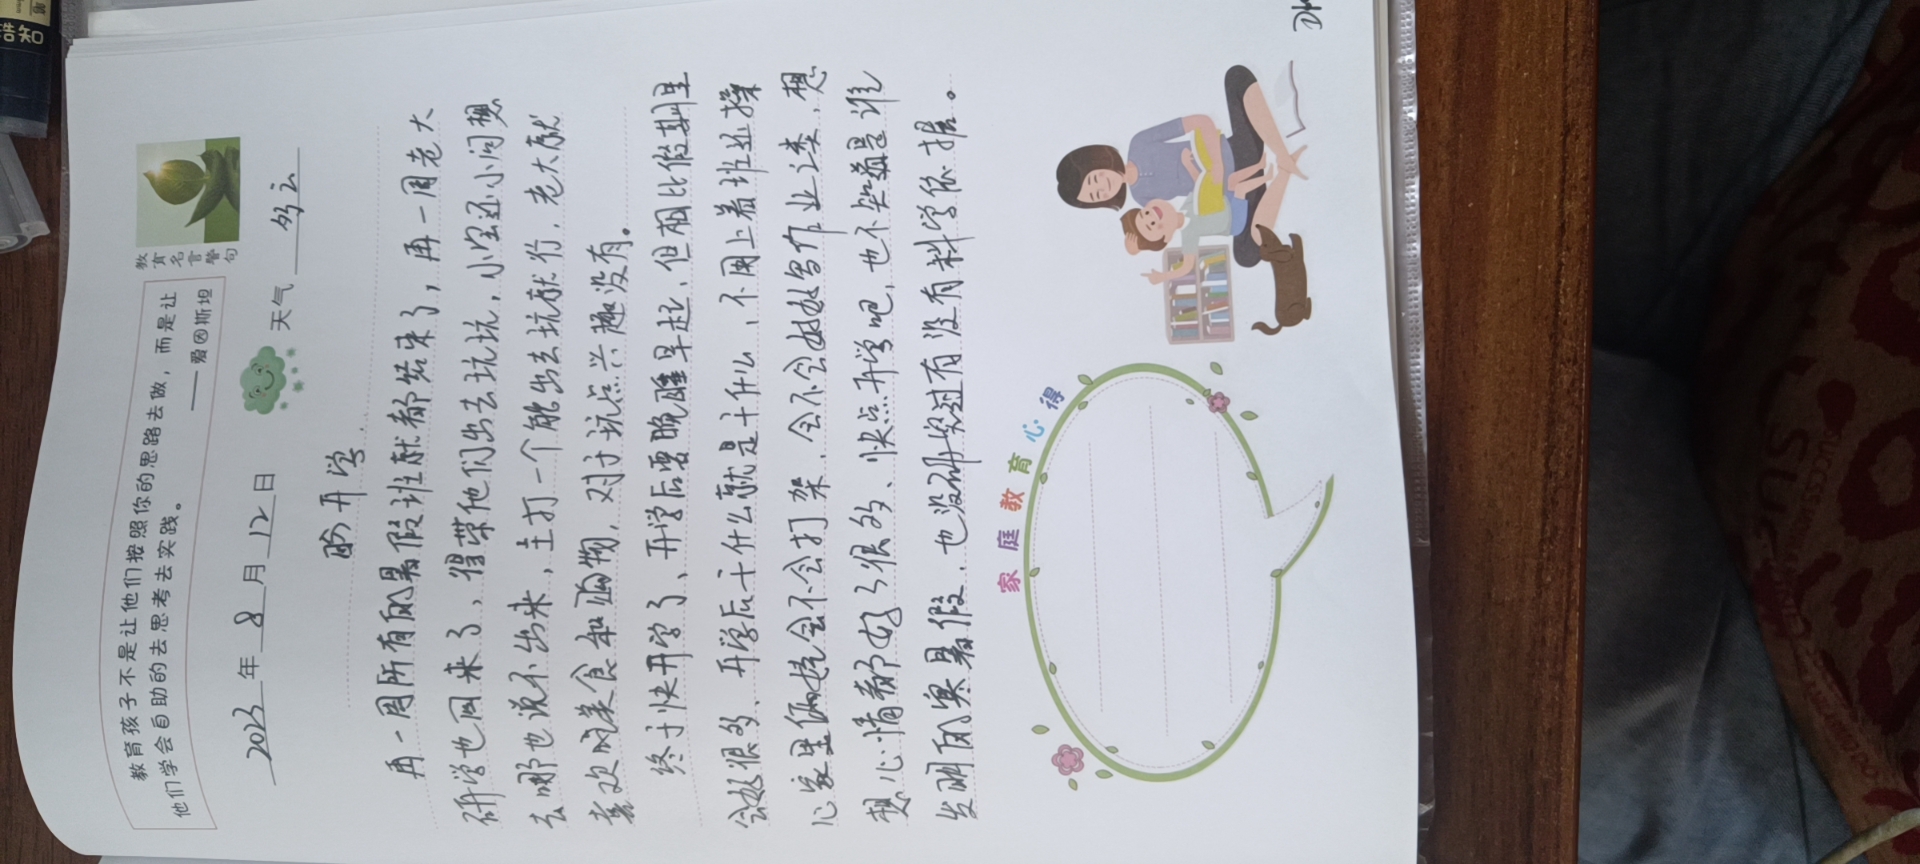 教育孩子不是让他们按照你的思路去做，而是让
他们学会自助的去思考去实践。
——爱因斯坦
教育名言警句
2023年8月12日
天气 多云
盼开学
再一周所有的暑假班就都结束了，再一周老大
研学也回来了、得带他们出去玩玩，小宝还小问想
去哪也说不出来，主打一个能出去玩就行，老大就
喜欢吃美食和购物，对于玩点兴趣没有。
终于快开学了、开学后要晚睡早起、但相比假期里
会好很多、开学后干什么就是干什么、不用上着班还操
心家里俩娃会不会打架、会不会好好写作业这类、想
想心情都好了很多、快点开学吧，也不知道是谁
发明的寒暑假、也没研究过有没有科学依据。
家庭教育心得